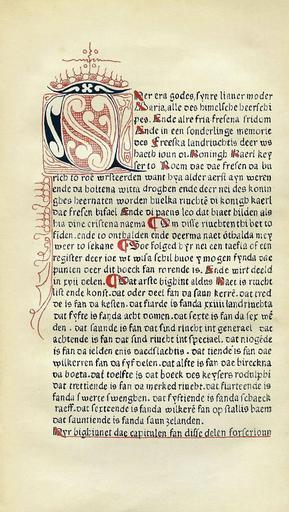 Ter era godes, synre liauer moder
Maria, alle des himelsche heerschi
pes. Ende alre fria fresena fridom
Ende in een sonderlinge memorie
des freeska landriuchtis deer ws
haeth ioun di. Koningh Kaerl key
ser to Roem dae dae fresen da bi
rich to roe wrsteerden want hya alder aerst ayn weren
ende da holtena witta drogben ende deer nei des konin
ghes heernaten worden huelka riuchtē di konigh kaerl
dae fresen bifael Ende di paens leo dat biaet bilden als
hia dine cristena naema
fiden. ende to onthalden ende deerma naet dwalda
weer to sekane Soe folged hyr nei een taefla of een
register deer ioe wt wisa schil buoe y mogen fynda dae
puncten deer dit boeck fan rorende is. Ende wirt deeld
in xvii delen. Dat aerste bighint aldus Haet is riucht
list ende konst. dat oder deel fan da saun kerrē. dat tred
de is fan da kesten. dat fiarde is fanda xxiiii landriuchta
dat fyfte is fanda acht domen. dat sexte is fan da sex wē
den. dat saunde is fan dat sind riucht int generael dat
achtende is fan dat sind riucht int speciael. dat niogēde
is fan da ielden enis daedslachtis. dat tiende is fan dae
wilkerren fan da fyf delen. dat alfte is fan dae bireckna
da boeta. dat toelfte is dat boeck des keysers rodulphi
dat trettiende is fan da merked riucht. dat fiarteende is
fanda swerte swengben. dat fystiende is fanda schaeck
raeff. dat sexteende is fanda wilkerē fan op stallis baem
dat sauntiende is fanda saun zelanden.
Hyr bighinnet dae capitulen fan disse delen forscrioun